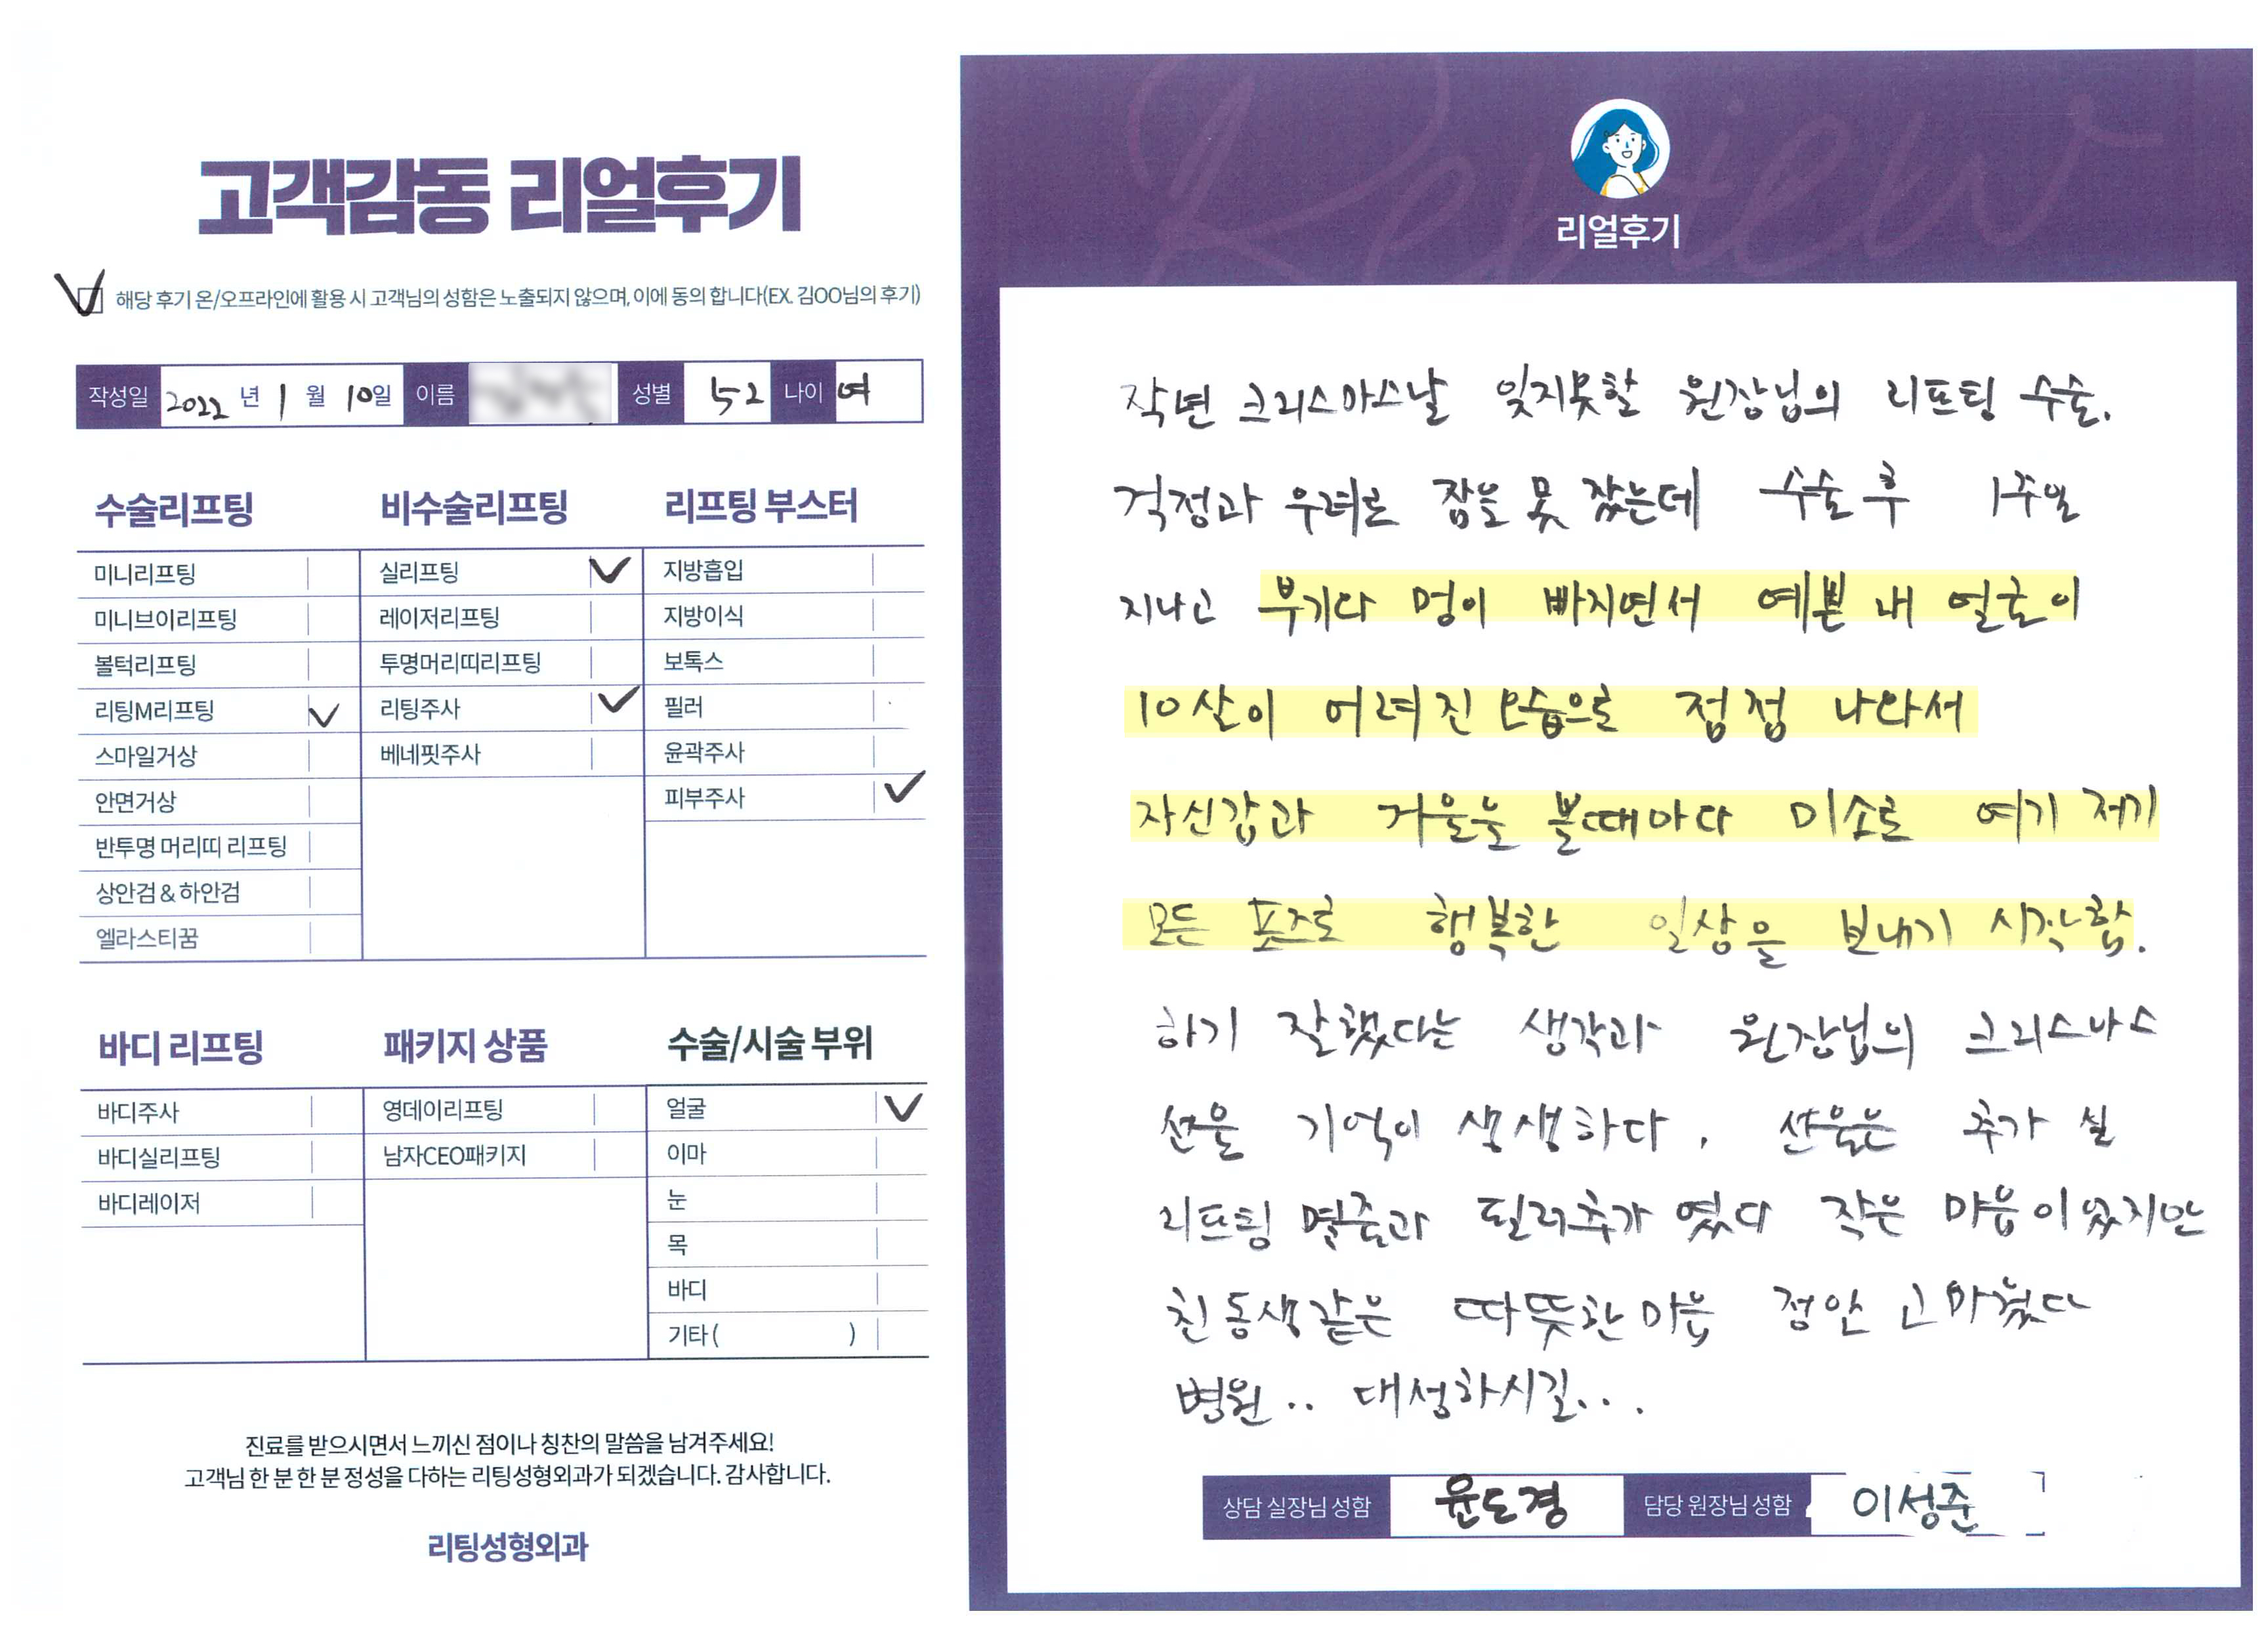 고객감동 리얼후기
해당 후기 온/오프라인에 활용 시 고객님의 성함은 노출되지 않으며, 이에 동의 합니다(EX. 김OO님의 후기)
작성일 2022 년 1 월 10일 이름 성별 52 나이 여
수술리프팅
미니리프팅
미니브이리프팅
볼턱리프팅
리팅M리프팅
스마일거상
안면거상
반투명 머리띠 리프팅
상안검 & 하안검
엘라스티꿈
비수술리프팅
실리프팅
레이저리프팅
투명머리띠리프팅
리팅주사
베네핏주사
리프팅 부스터
지방흡입
지방이식
보톡스
필러
윤곽주사
피부주사
바디 리프팅
바디주사
바디실리프팅
바디레이저
패키지 상품
영데이리프팅
남자CEO패키지
수술/시술 부위
얼굴
이마
눈
목
바디
기타 ( )
진료를 받으시면서 느끼신 점이나 칭찬의 말씀을 남겨주세요!
고객님 한 분 한 분 정성을 다하는 리팅성형외과가 되겠습니다. 감사합니다.
리팅성형외과
Review
리얼후기
작년 크리스마스날 잊지못할 원장님의 리프팅 수술.
걱정과 우려로 잠을 못 잤는데 수술 후 1주일
지나고 부기다 멍이 빠지면서 예쁜 내 얼굴이
10살이 어려진 모습으로 점점 나와서
자신감과 거울을 볼때마다 미소로 여기 저기
모든 포즈로 행복한 일상을 보내기 시작함.
하기 잘했다는 생각과 원장님의 크리스마스
선물 기억이 생생하다. 선물은 추가 실
리프팅 몇줄과 필러추가 였다 작은 마음이었지만
친동생같은 따뜻한 마음 정안 고마웠다
병원.. 대성하시길...
상담 실장님 성함 윤도경 담당 원장님 성함 이성준